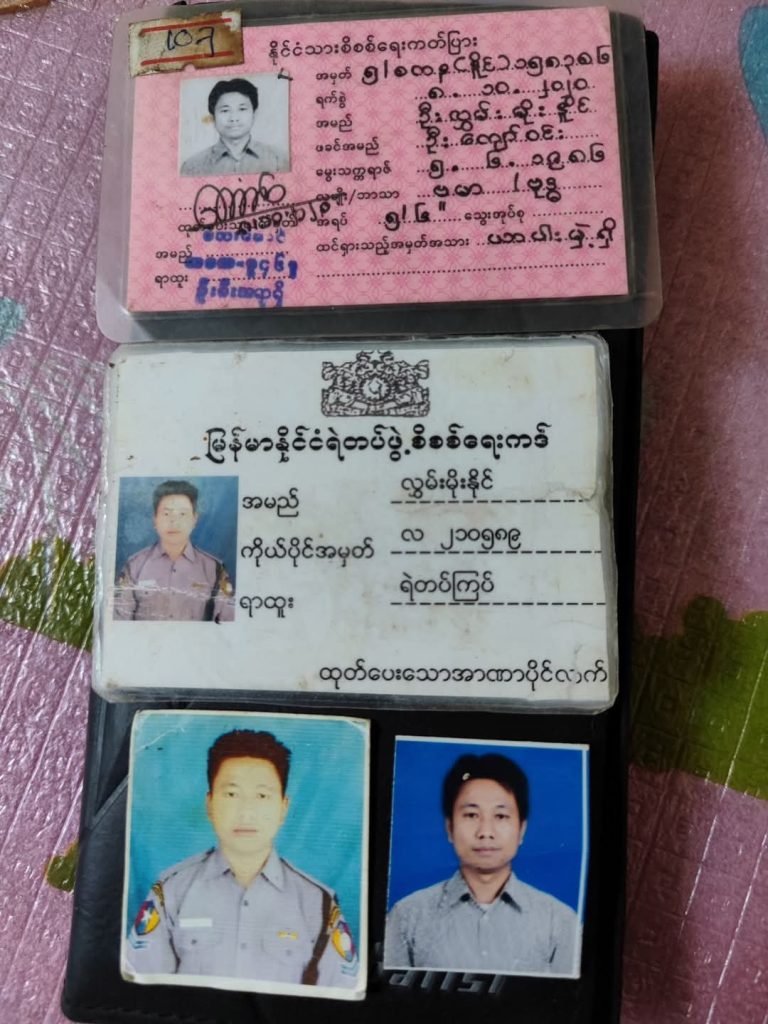 ၁၀၇
နိုင်ငံသားစိစစ်ရေးကတ်ပြား
အမှတ် ၅/ခတန(နိုင်)၁၅၈၃၈၆
ရက်စွဲ ၈. ၁၀. ၂၀၂၀
အမည် ဦးလွှမ်းမိုးနိုင်
ဖခင်အမည် ဦးကျော်ဝင်း
မွေးသက္ကရာဇ် ၅. ၆. ၁၉၈၆
လူမျိုး/ဘာသာ ဗမာ/ဗုဒ္ဓ
အရပ် ၅/၆" သွေးအုပ်စု
ထင်ရှားသည့်အမှတ်အသား ယာပါးမှဲ့ရှိ
အမည်
ရာထူး ဦးစီးအရာရှိ
မြန်မာနိုင်ငံရဲတပ်ဖွဲ့စိစစ်ရေးကဒ်
အမည် လွှမ်းမိုးနိုင်
ကိုယ်ပိုင်အမှတ် လ ၂၁၀၅၈၉
ရာထူး ရဲတပ်ကြပ်
ထုတ်ပေးသောအာဏာပိုင်လက်